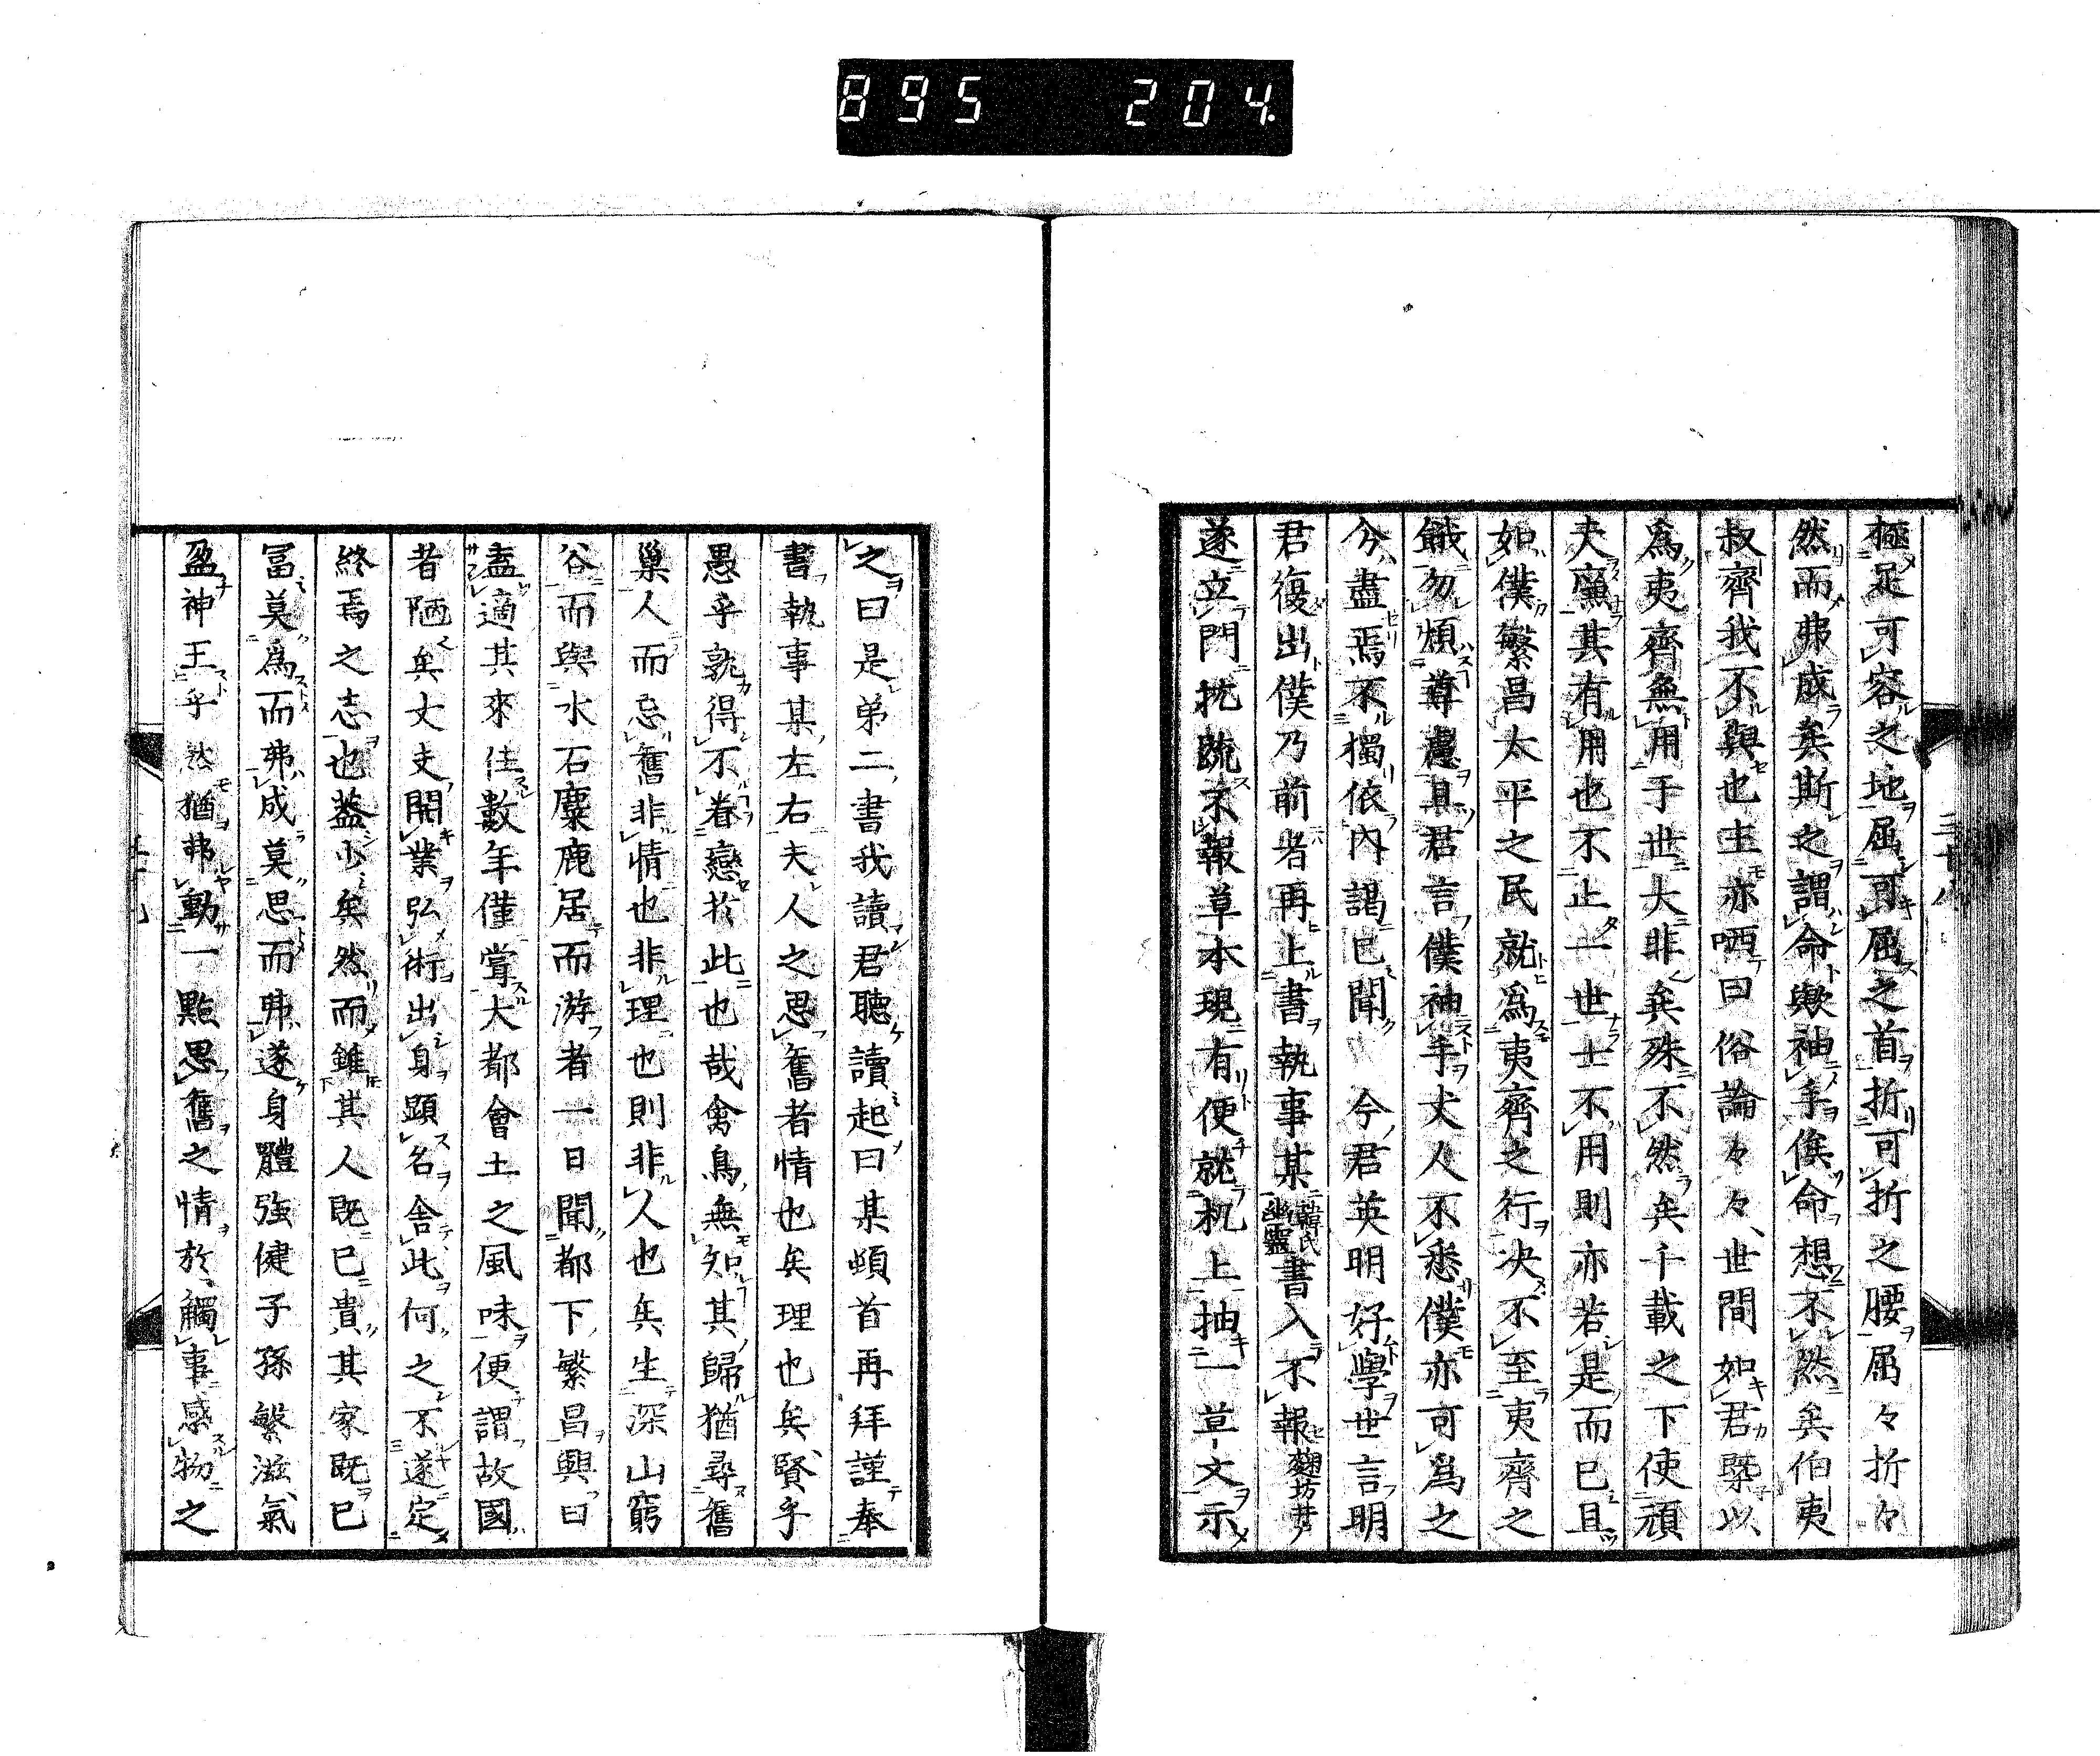 895 204
極足可容之地屈可屈之首折可折之腰屈々折々
然而弗成矣斯之謂命歟袖手俟命想不然矣伯夷
叔齊我不與也主亦哂曰俗論々々世間如君槩以
為夷齊無用于世大非矣殊不然矣千載之下使頑
夫廉其有用也不止一世士不用則亦若是而已且
如僕繁昌太平之民就為夷齊之行决不至夷齊之
餓勿煩尊慮且君言僕袖手丈人不悉僕亦可為之
兮盡焉不獨依內謁已聞 今君英明好學世言明
君復出僕乃前者再上書執事某韓氏幽靈書入不報
遂立門抗疏不報草本現有便就机上抽一草文示
之曰是弟二書我讀君聽讀起曰某頓首再拜謹奉
書執事某左右夫人之思舊者情也矣理也矣賢乎
愚乎孰得不眷戀於此也哉禽鳥無知其歸猶尋舊
巢人而忘舊非情也非理也則非人也矣生深山窮
谷而與水石麋鹿居而游者一日聞都下繁昌輿曰
盍適其來住數年僅嘗大都會土之風味便謂故國
者陋矣丈夫開業弘術出身顕名舎此何之不遂定
終焉之志也葢少矣然而雖其人既已貴其家既已
冨莫為而弗成莫思而弗遂身體强健子孫繁滋氣
盈神王乎然猶弗動一點思舊之情於觸事感物之